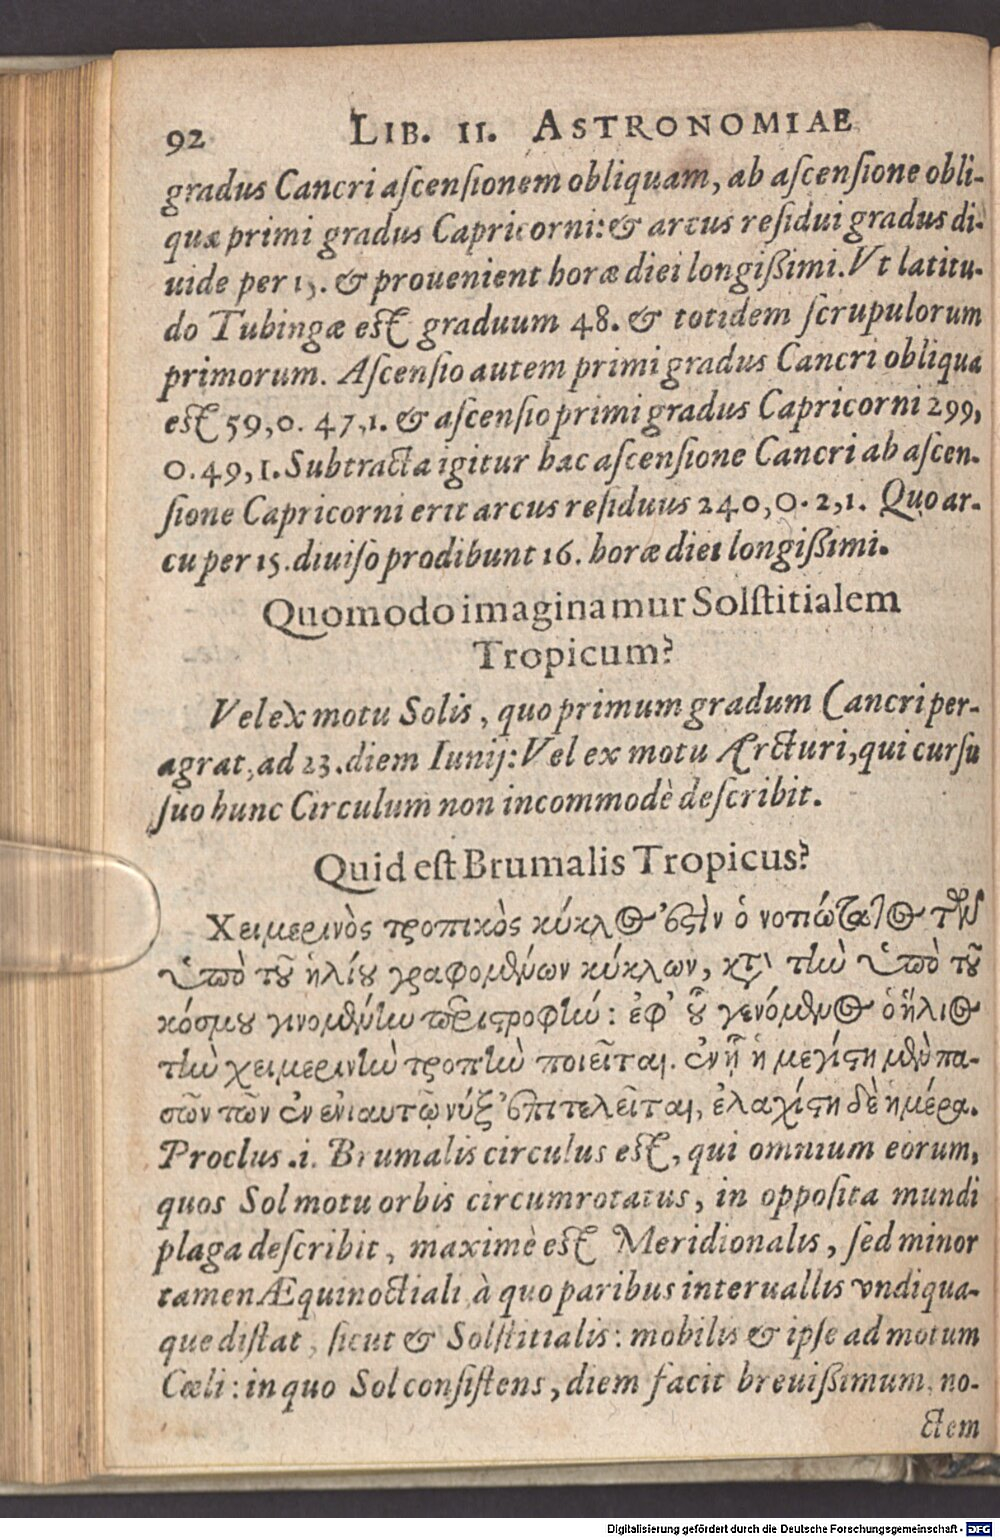 92 LIB. II. ASTRONOMIAE
gradus Cancri aſcenſionem obliquam, ab aſcenſione obli-
quæ primi gradus Capricorni: & arcus reſidui gradus di-
uide per 15. & prouenient horæ diei longißimi. Vt latitu-
do Tubingæ eſt graduum 48. & totidem ſcrupulorum
primorum. Aſcenſio autem primi gradus Cancri obliqua
eſt 59,0. 47,1. & aſcenſio primi gradus Capricorni 299,
0. 49, 1. Subtracta igitur hac aſcenſione Cancri ab aſcen-
ſione Capricorni erit arcus reſiduus 240, 0. 2, 1. Quo ar-
cu per 15. diuiſo prodibunt 16. horæ diei longißimi.
Quomodo imaginamur Solſtitialem
Tropicum?
Vel ex motu Solis, quo primum gradum Cancri per-
agrat, ad 23. diem Iunij: Vel ex motu Arcturi, qui curſu
ſuo hunc Circulum non incommodè deſcribit.
Quid eſt Brumalis Tropicus?
Χειμερινὸς τροπικὸς κύκλος ἐστὶν ὁ νοτιώτατος τῶν
ὑπὸ τοῦ ἡλίου γραφομένων κύκλων, κατὰ τὴν ὑπὸ τοῦ
κόσμου γινομένην περιστροφὴν: ἐφ' οὗ γενόμενος ὁ ἥλιος
τὴν χειμερινὴν τροπὴν ποιεῖται. ἐν ᾗ ἡ μεγίστη μὲν πα-
σῶν τῶν ἐν ἐνιαυτῷ νὺξ ἐπιτελεῖται, ἐλαχίστη δὲ ἡμέρα.
Proclus .i. Brumalis circulus eſt, qui omnium eorum,
quos Sol motu orbis circumrotatus, in oppoſita mundi
plaga deſcribit, maximè eſt Meridionalis, ſed minor
tamen Æquinoctiali, à quo paribus interuallis vndiqua-
que diſtat, ſicut & Solſtitialis: mobilis & ipſe ad motum
Cœli: in quo Sol conſiſtens, diem facit breuißimum, no-
ctem
Digitalisierung gefördert durch die Deutsche Forschungsgemeinschaft - DFG